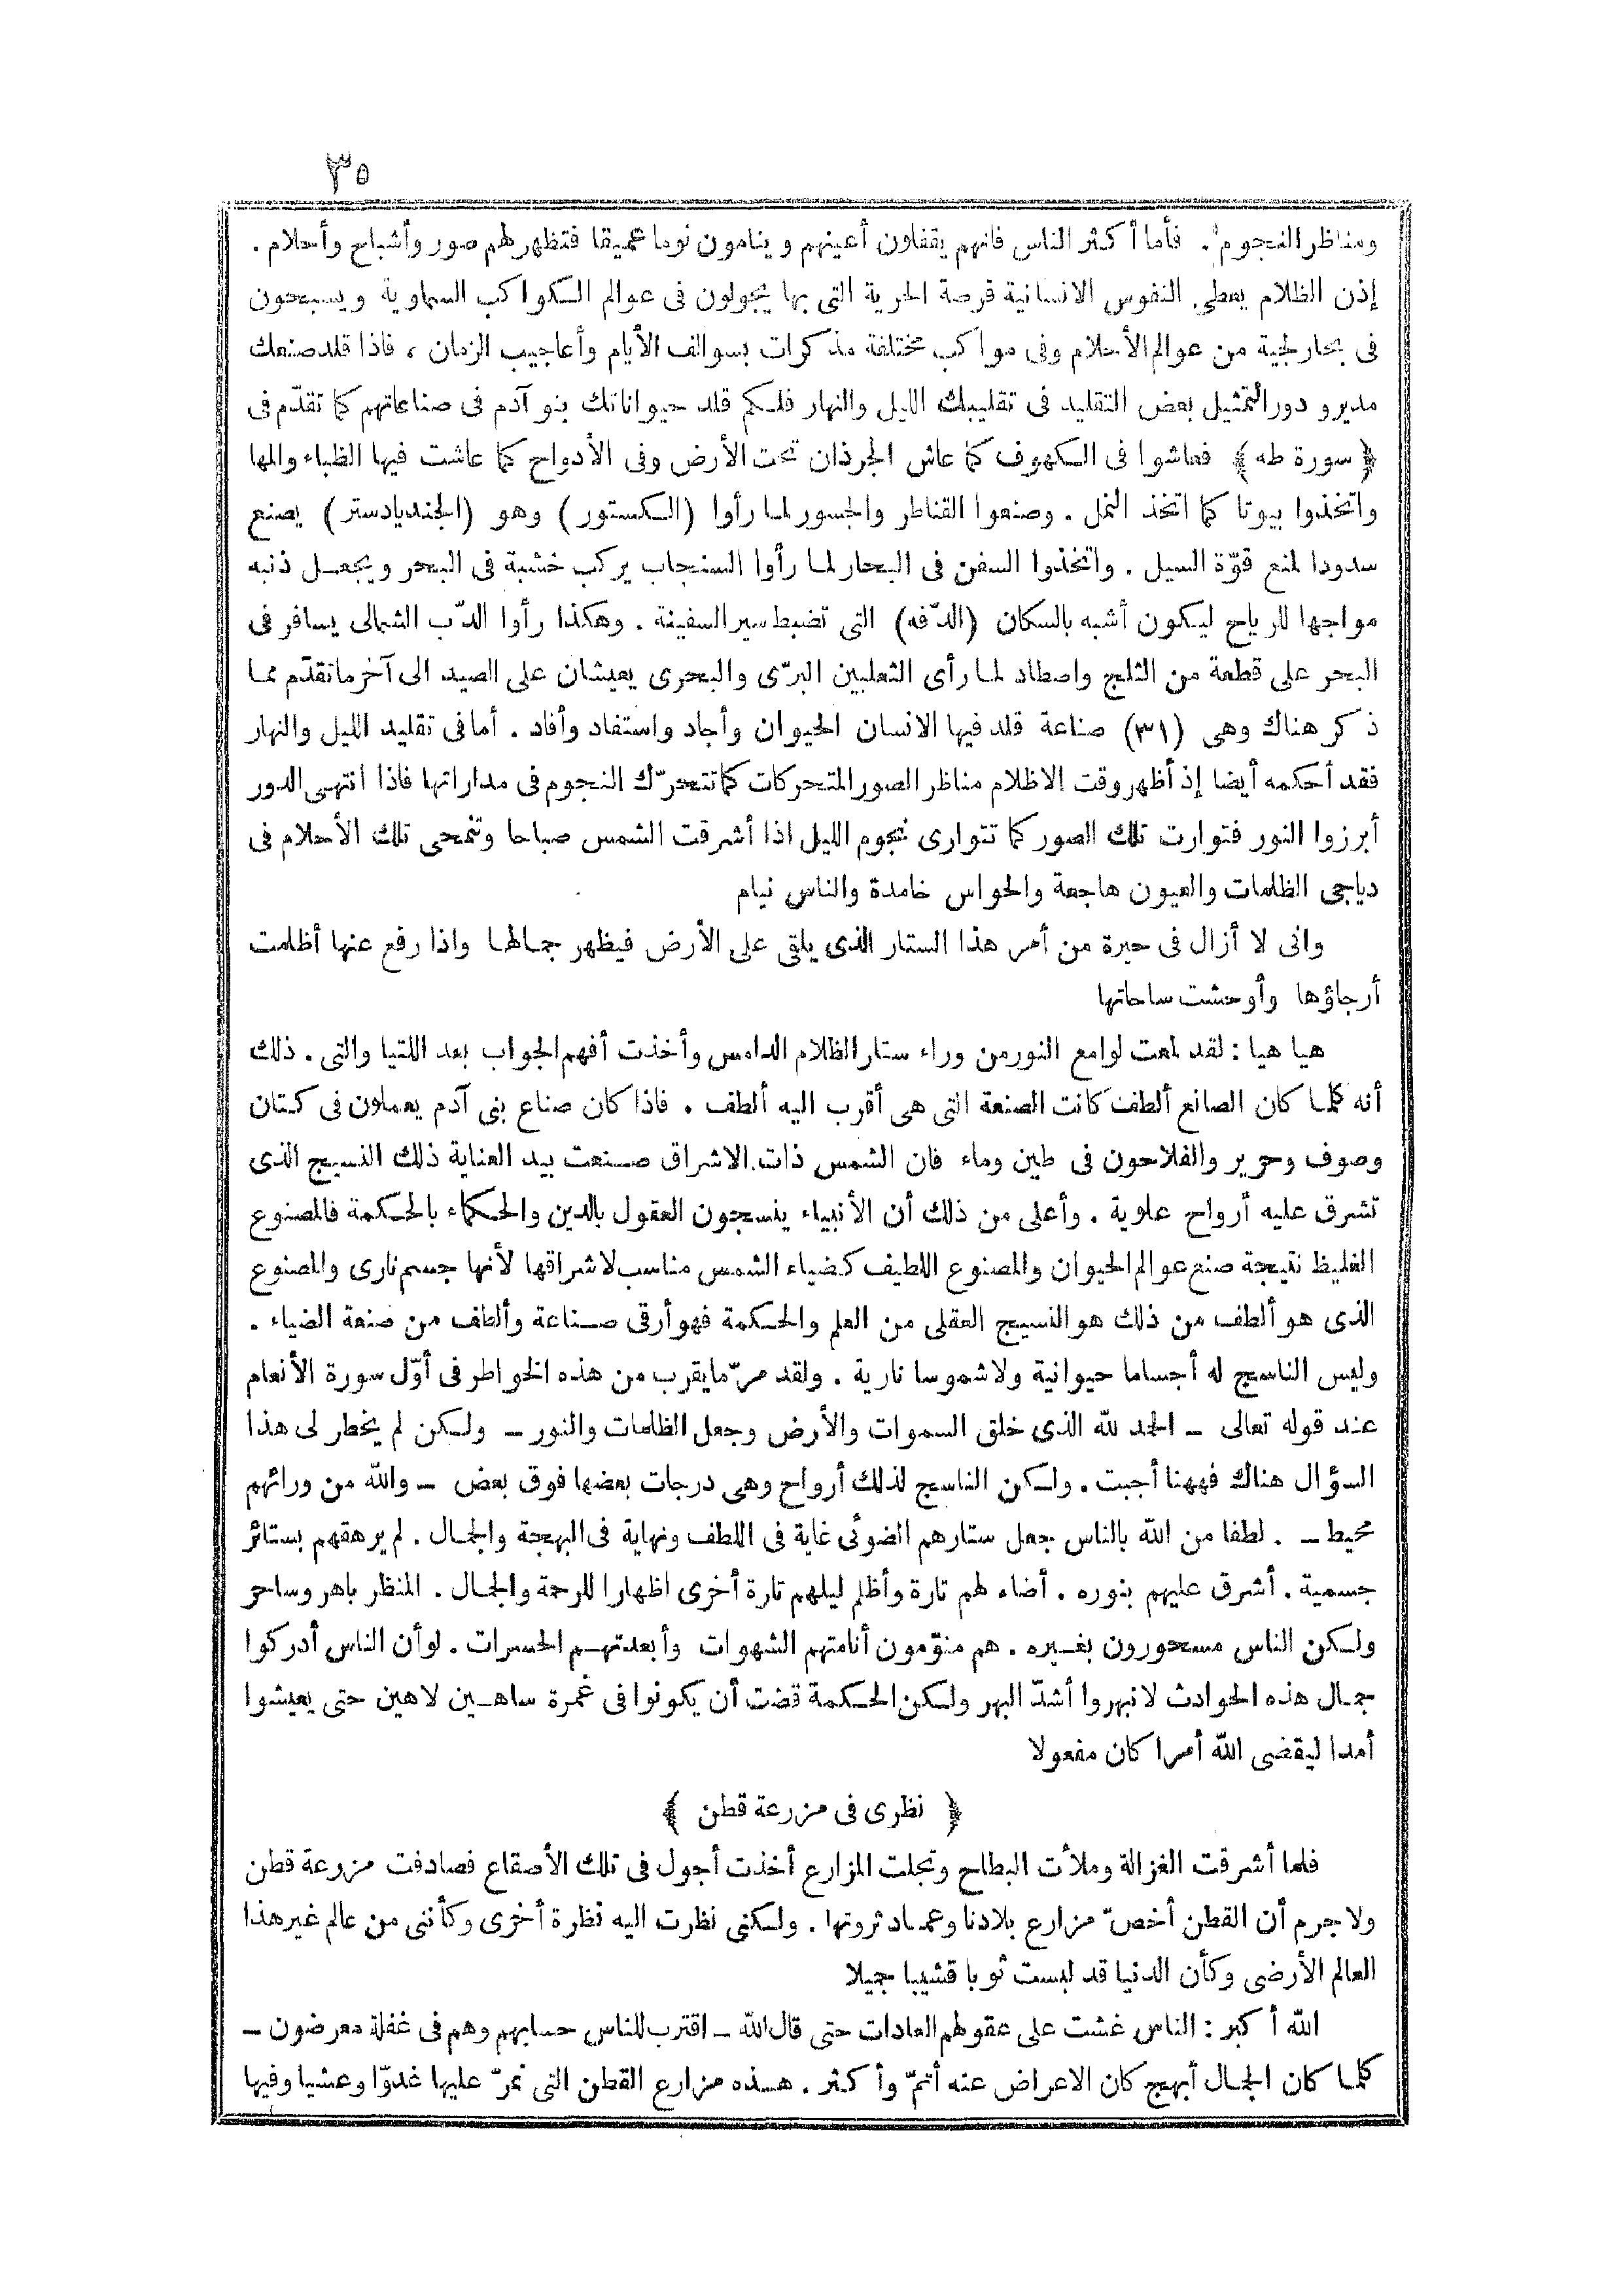 ٣٥
ومناظر النجوم . فأما أكثر الناس فانهم يقفلون أعينهم وينامون نوما عميقا فتظهر لهم صور وأشباح وأحلام .
إذن الظلام يعطي النفوس الانسانية فرصة الحرية التى بها يجولون فى عوالم الكواكب السماوية ويسبحون
فى بحار لجية من عوالم الأحلام وفى مواكب مختلفة مذكرات بسوالف الأيام وأعاجيب الزمان ، فاذا قلد صنعك
مديرو دور التمثيل بعض التقليد فى تقليبك الليل والنهار فلكم قلد حيواناتك بنو آدم فى صناعاتهم كما تقدّم فى
﴿ سورة طه ﴾ فعاشوا فى الكهوف كما عاش الجرذان تحت الأرض وفى الأدواح كما عاشت فيها الظباء والمها
واتخذوا بيوتا كما اتخذ النمل . وصنعوا القناطر والجسور لما رأوا (الكستور) وهو (الجندبادستر) يصنع
سدودا لمنع قوّة السيل . واتخذوا السفن فى البحار لما رأوا السنجاب يركب خشبة فى البحر ويجعل ذنبه
مواجها للرياح ليكون أشبه بالسكان (الدّفه) التى تضبط سير السفينة . وهكذا رأوا الدّب الشمالى يسافر فى
البحر على قطعة من الثلج واصطاد لما رأى الثعلبين البرّى والبحرى يعيشان على الصيد الى آخر ما تقدّم مما
ذكر هناك وهى (٣١) صناعة قلد فيها الانسان الحيوان وأجاد واستفاد وأفاد . أما فى تقليد الليل والنهار
فقد أحكمه أيضا إذ أظهر وقت الاظلام مناظر الصور المتحركات كما تتحرّك النجوم فى مداراتها فاذا انتهى الدور
أبرزوا النور فتوارت تلك الصور كما تتوارى نجوم الليل اذا أشرقت الشمس صباحا وتنمحى تلك الأحلام فى
دياجى الظلمات والعيون هاجعة والحواس خامدة والناس نيام
وانى لا أزال فى حيرة من أمر هذا الستار الذى يلقى على الأرض فيظهر جمالها واذا رفع عنها أظلمت
أرجاؤها وأوحشت ساحاتها
هيا هيا : لقد لمعت لوامع النور من وراء ستار الظلام الدامس وأخذت أفهم الجواب بعد اللتيا والتى . ذلك
أنه كلما كان الصانع ألطف كانت الصنعة التى هى أقرب اليه ألطف . فاذا كان صناع بنى آدم يعملون فى كتان
وصوف وحرير والفلاحون فى طين وماء فان الشمس ذات الاشراق صنعت بيد العناية ذلك النسيج الذى
تشرق عليه أرواح علوية . وأعلى من ذلك أن الأنبياء ينسجون العقول بالدين والحكماء بالحكمة فالمصنوع
الغليظ نتيجة صنع عوالم الحيوان والمصنوع اللطيف كضياء الشمس مناسب لاشراقها لأنها جسم نارى والمصنوع
الذى هو ألطف من ذلك هو النسيج العقلى من العلم والحكمة فهو أرقى صناعة وألطف من صنعة الضياء .
وليس الناسج له أجساما حيوانية ولا شموسا نارية . ولقد مرّ مايقرب من هذه الخواطر فى أوّل سورة الأنعام
عند قوله تعالى - الحمد لله الذى خلق السموات والأرض وجعل الظلمات والنور - ولكن لم يخطر لى هذا
السؤال هناك فههنا أجبت . ولكن الناسج لذلك أرواح وهى درجات بعضها فوق بعض - والله من ورائهم
محيط - . لطفا من الله بالناس جعل ستارهم الضوئى غاية فى اللطف ونهاية فى البهجة والجمال . لم يرهقهم بستائر
جسمية . أشرق عليهم بنوره . أضاء لهم تارة وأظلم ليلهم تارة أخرى اظهارا للرحمة والجمال . المنظر باهر وساحر
ولكن الناس مسحورون بغيره . هم منوّمون أنامتهم الشهوات وأبعدتهم الحسرات . لو أن الناس أدركوا
جمال هذه الحوادث لانبهروا أشدّ البهر ولكن الحكمة قضت أن يكونوا فى غمرة ساهين لاهين حتى يعيشوا
أمدا ليقضى الله أمرا كان مفعولا
﴿ نظرى فى مزرعة قطن ﴾
فلما أشرقت الغزالة وملأت البطاح وتجلت المزارع أخذت أجول فى تلك الأصقاع فصادفت مزرعة قطن
ولا جرم أن القطن أخصّ مزارع بلادنا وعماد ثروتها . ولكنى نظرت اليه نظرة أخرى وكأننى من عالم غير هذا
العالم الأرضى وكأن الدنيا قد لبست ثوبا قشيبا جميلا
الله أكبر : الناس غشت على عقولهم العادات حتى قال الله - اقترب للناس حسابهم وهم فى غفلة معرضون -
كلما كان الجمال أبهج كان الاعراض عنه أتمّ وأكثر . هذه مزارع القطن التى نمرّ عليها غدوّا وعشيا وفيها